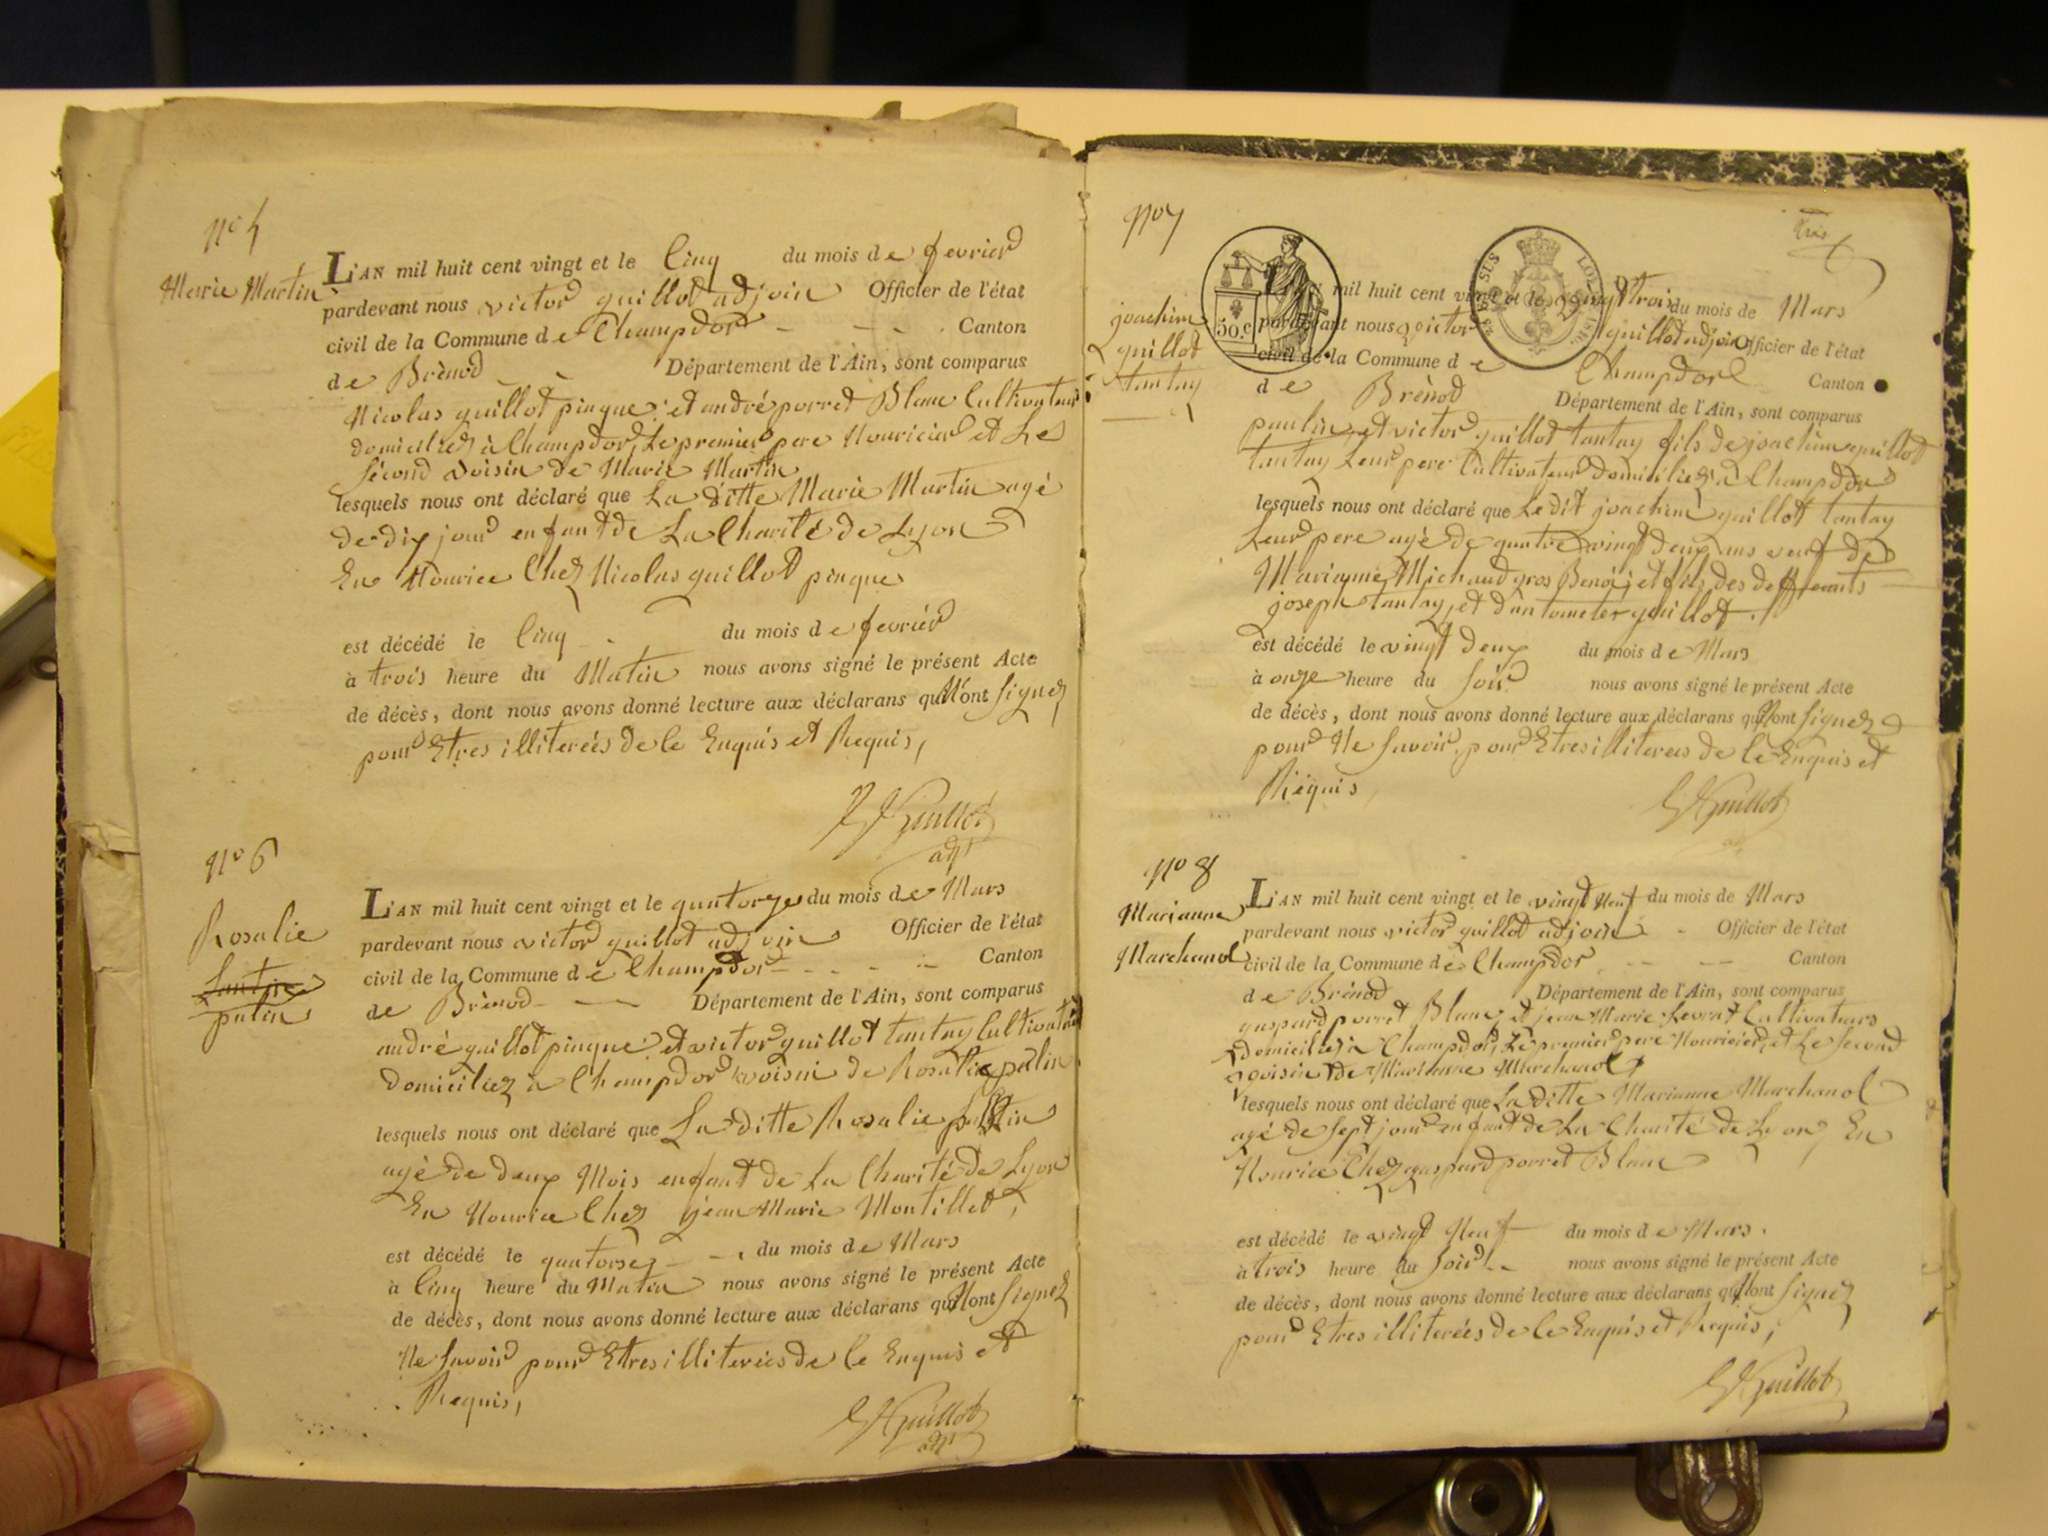 No 5
Marie Martin
L'AN mil huit cent vingt et le Cinq du mois de fevrier
pardevant nous victor guillot adjoin Officier de l'état
civil de la Commune de Champdor Canton
de Brénod Département de l'Ain, sont comparus
Nicolas guillot pinque et andré porret Blanc Cultivateur
domiciliez à Champdor, Le premier pere Nouricier et Le
sécond voisin de Marie Martin
lesquels nous ont déclaré que La ditte Marie Martin agé
de dix jour enfant de La Charité de Lyon
En Nourice Chez Nicolas guillot pinque
est décédé le Cinq du mois de fevriér
à trois heure du Matin nous avons signé le présent Acte
de décès, dont nous avons donné lecture aux déclarans qui N'ont signez
pour Etres illiterées de le Enquis et Requis,
Guillot
adjt
No 6
Rosalie
pulin
L'AN mil huit cent vingt et le quatorze du mois de Mars
pardevant nous victor guillot adjoin Officier de l'état
civil de la Commune de Champdor Canton
de Brénod Département de l'Ain, sont comparus
andré guillot pinque et victor guillot tantay Cultivateur
domiciliez à Champdor voisin de Rosalie pulin
lesquels nous ont déclaré que La ditte Rosalie
agé de deux Mois enfant de La Charité de Lyon
En Nourice Chez jean Marie Montillet,
est décédé le quatorse du mois de Mars
à Cinq heure du Matin nous avons signé le présent Acte
de décès, dont nous avons donné lecture aux déclarans qui N'ont signez
Ne savoir pour Etres illiterées de le Enquis et
Requis,
Guillot
adjt
No 7
50.c
LOI
joachim
guillot
tantay
mil huit cent vingt et le vingt trois du mois de Mars
pardevant nous victor guillot adjoin Officier de l'état
civil de la Commune de Champdor Canton
de Brénod Département de l'Ain, sont comparus
paulin et victor guillot tantay fils de joachim guillot
tantay Leur pere Cultivateur domiciliez à Champdor
lesquels nous ont déclaré que Le dit joachim guillot tantay
Leur pere agé de quatre vingt deux ans veuf de
Marianne Michaud gros Benoi et fils des deffunts
joseph tantay et guillot.
est décédé le vingt deux du mois de Mars
à onze heure du soir nous avons signé le présent Acte
de décès, dont nous avons donné lecture aux déclarans qui N'ont signez
pour Ne savoir, pour Etres illiterées de le Enquis et
Réquis,
Guillot
No 8
Marianne
Marchand
L'AN mil huit cent vingt et le vingt Neuf du mois de Mars
pardevant nous victor guillot adjoin Officier de l'état
civil de la Commune de Champdor Canton
de Brénod Département de l'Ain, sont comparus
gaspard porret Blanc et jean Marie Levrat Cultivateurs
domiciliez à Champdor, Le premier pere Nouricier, et Le second
voisin de Marianne Marchand
lesquels nous ont déclaré que La ditte Marianne Marchand
agé de sept jour enfant de La Charité de Lyon En
Nourice Chez gaspard porret Blanc
est décédé le vingt Neuf du mois de Mars.
à trois heure du soir nous avons signé le présent Acte
de décès, dont nous avons donné lecture aux déclarans qui N'ont signez
pour Etres illiterées de le Enquis et Requis,
Guillot